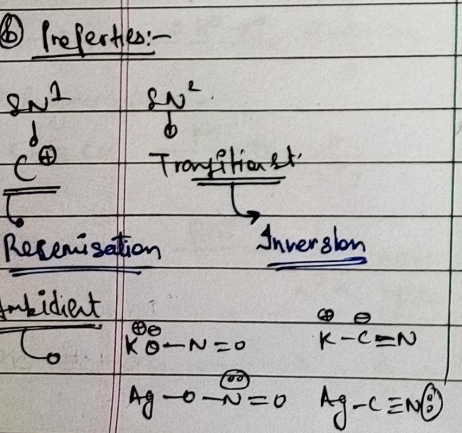 ⑥ Properties:-
SN1 SN2
C⊕ Transition st.
Resemisation Inversion
Ambident
K⊕ O⊖-N=O K⊕-C⊖≡N
Ag-O-N̈=O Ag-C≡N: